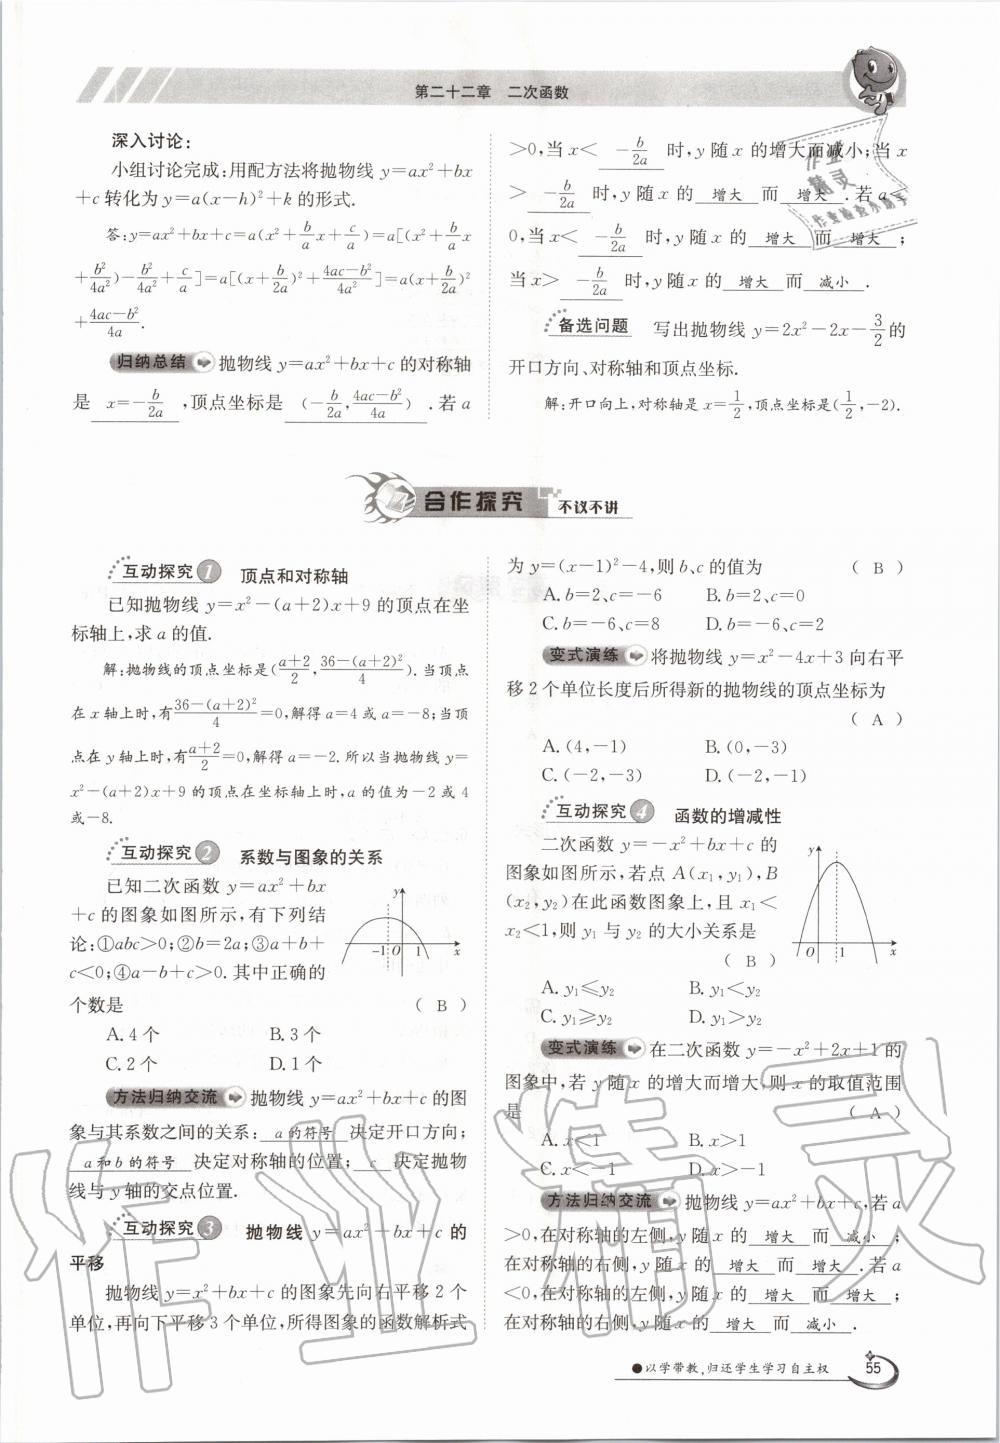 第二十二章 二次函数
深入讨论:
小组讨论完成:用配方法将抛物线 y=ax²+bx
+c 转化为 y=a(x-h)²+k 的形式.
答:y=ax²+bx+c=a(x²+b/a x+c/a)=a[(x²+b/a x
+b²/4a²)-b²/4a²+c/a]=a[(x+b/2a)²+4ac-b²/4a²]=a(x+b/2a)²
+4ac-b²/4a.
归纳总结 抛物线 y=ax²+bx+c 的对称轴
是 x=-b/2a ,顶点坐标是 (-b/2a, 4ac-b²/4a) .若 a
>0,当 x< -b/2a 时,y 随 x 的增大而减小;当 x
> -b/2a 时,y 随 x 的 增大 而 增大 .若 a<
0,当 x< -b/2a 时,y 随 x 的 增大 而 增大 ;
当 x> -b/2a 时,y 随 x 的 增大 而 减小 .
备选问题 写出抛物线 y=2x²-2x-3/2 的
开口方向、对称轴和顶点坐标.
解:开口向上,对称轴是 x=1/2,顶点坐标是(1/2,-2).
合作探究 不议不讲
互动探究 1 顶点和对称轴
已知抛物线 y=x²-(a+2)x+9 的顶点在坐
标轴上,求 a 的值.
解:抛物线的顶点坐标是(a+2/2, 36-(a+2)²/4).当顶点
在 x 轴上时,有36-(a+2)²/4=0,解得 a=4 或 a=-8;当顶
点在 y 轴上时,有a+2/2=0,解得 a=-2.所以当抛物线 y=
x²-(a+2)x+9 的顶点在坐标轴上时,a 的值为-2 或 4
或-8.
互动探究 2 系数与图象的关系
已知二次函数 y=ax²+bx
+c 的图象如图所示,有下列结
论:①abc>0;②b=2a;③a+b+
c<0;④a-b+c>0.其中正确的
个数是 ( B )
y
-1 O 1 x
A.4 个 B.3 个
C.2 个 D.1 个
方法归纳交流 抛物线 y=ax²+bx+c 的图
象与其系数之间的关系: a 的符号 决定开口方向;
a 和 b 的符号 决定对称轴的位置; c 决定抛物
线与 y 轴的交点位置.
互动探究 3 抛物线 y=ax²+bx+c 的
平移
抛物线 y=x²+bx+c 的图象先向右平移 2 个
单位,再向下平移 3 个单位,所得图象的函数解析式
为 y=(x-1)²-4,则 b、c 的值为 ( B )
A.b=2、c=-6 B.b=2、c=0
C.b=-6、c=8 D.b=-6、c=2
变式演练 将抛物线 y=x²-4x+3 向右平
移 2 个单位长度后所得新的抛物线的顶点坐标为
( A )
A.(4,-1) B.(0,-3)
C.(-2,-3) D.(-2,-1)
互动探究 4 函数的增减性
二次函数 y=-x²+bx+c 的
图象如图所示,若点 A(x₁,y₁),B
(x₂,y₂)在此函数图象上,且 x₁<
x₂<1,则 y₁ 与 y₂ 的大小关系是
( B )
y
O 1 x
A.y₁≤y₂ B.y₁<y₂
C.y₁≥y₂ D.y₁>y₂
变式演练 在二次函数 y=-x²+2x+1 的
图象中,若 y 随 x 的增大而增大,则 x 的取值范围
是 ( A )
A.x<1 B.x>1
C.x<-1 D.x>-1
方法归纳交流 抛物线 y=ax²+bx+c,若 a
>0,在对称轴的左侧,y 随 x 的 增大 而 减小 ;
在对称轴的右侧,y 随 x 的 增大 而 增大 .若 a
<0,在对称轴的左侧,y 随 x 的 增大 而 增大 ;
在对称轴的右侧,y 随 x 的 增大 而 减小 .
●以学带教,归还学生学习自主权
55
作业精灵
作业
精灵
作业检查小助手